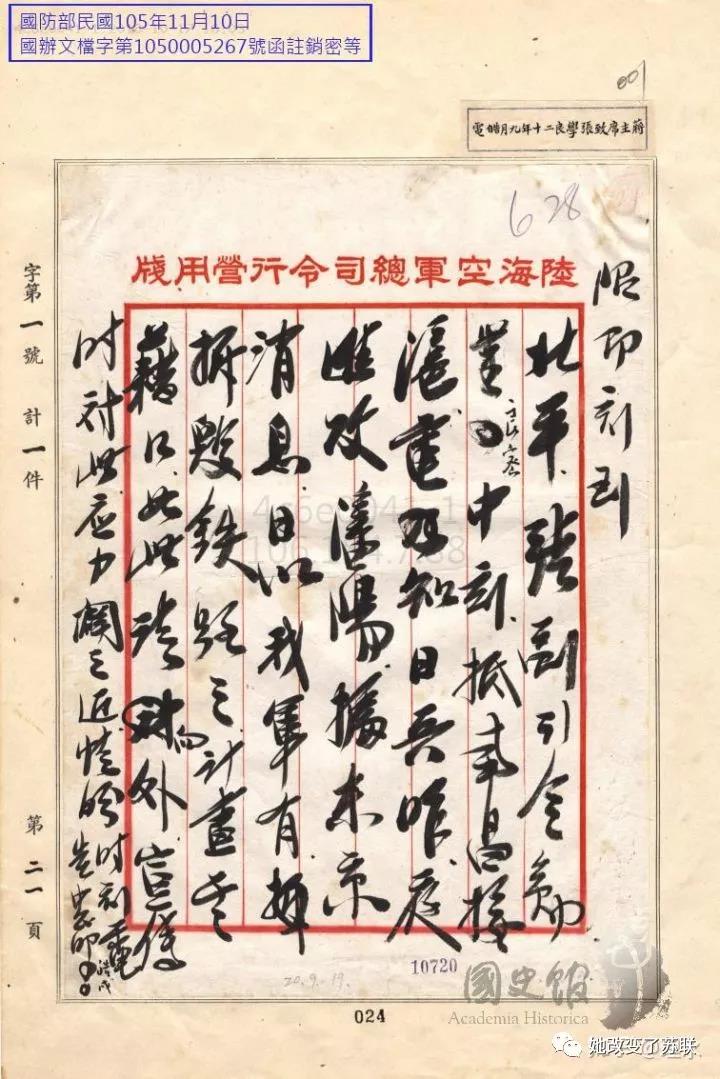 國防部民國105年11月10日
國辦文檔字第1050005267號函註銷密等
001
蔣主席致張學良二十年九月皓電
628
陸海空軍總司令行營用牋
限即刻到
北平張副司令勛
鑒良密中刻抵南昌接
滬電乃知日兵昨夜
進攻瀋陽據東京
消息日以我軍有
拆毀鐵路之計畫其
藉口如此請向外宣傳
时对此应力闢之近情盼时刻電
告中正叩
皓戌
字第一號 計一件 第二一頁
20.9.19.
10720
024
國史館
Academia Historica
她改变了苏联